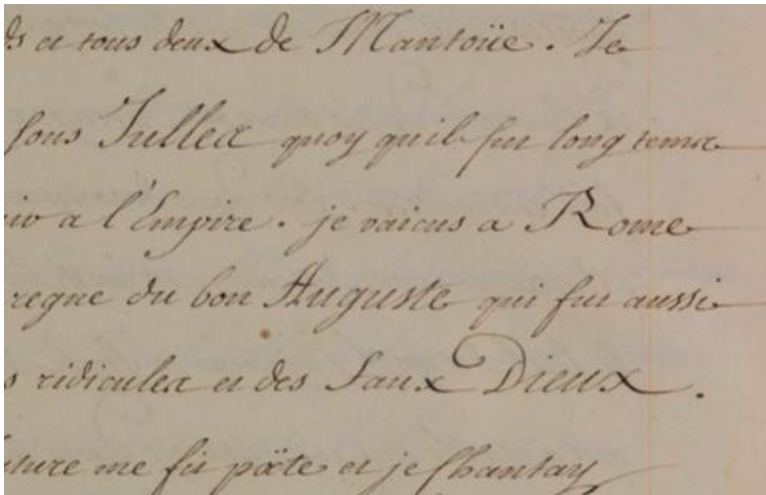 ds et tous deux de Mantoüe. Je
sous Jullea quoy quil fut long tems
a l'Empire. je vaicus a Rome
regne du bon Auguste qui fut aussi
s ridicules et des Faux Dieux.
ature me fit poëte et je Chantay